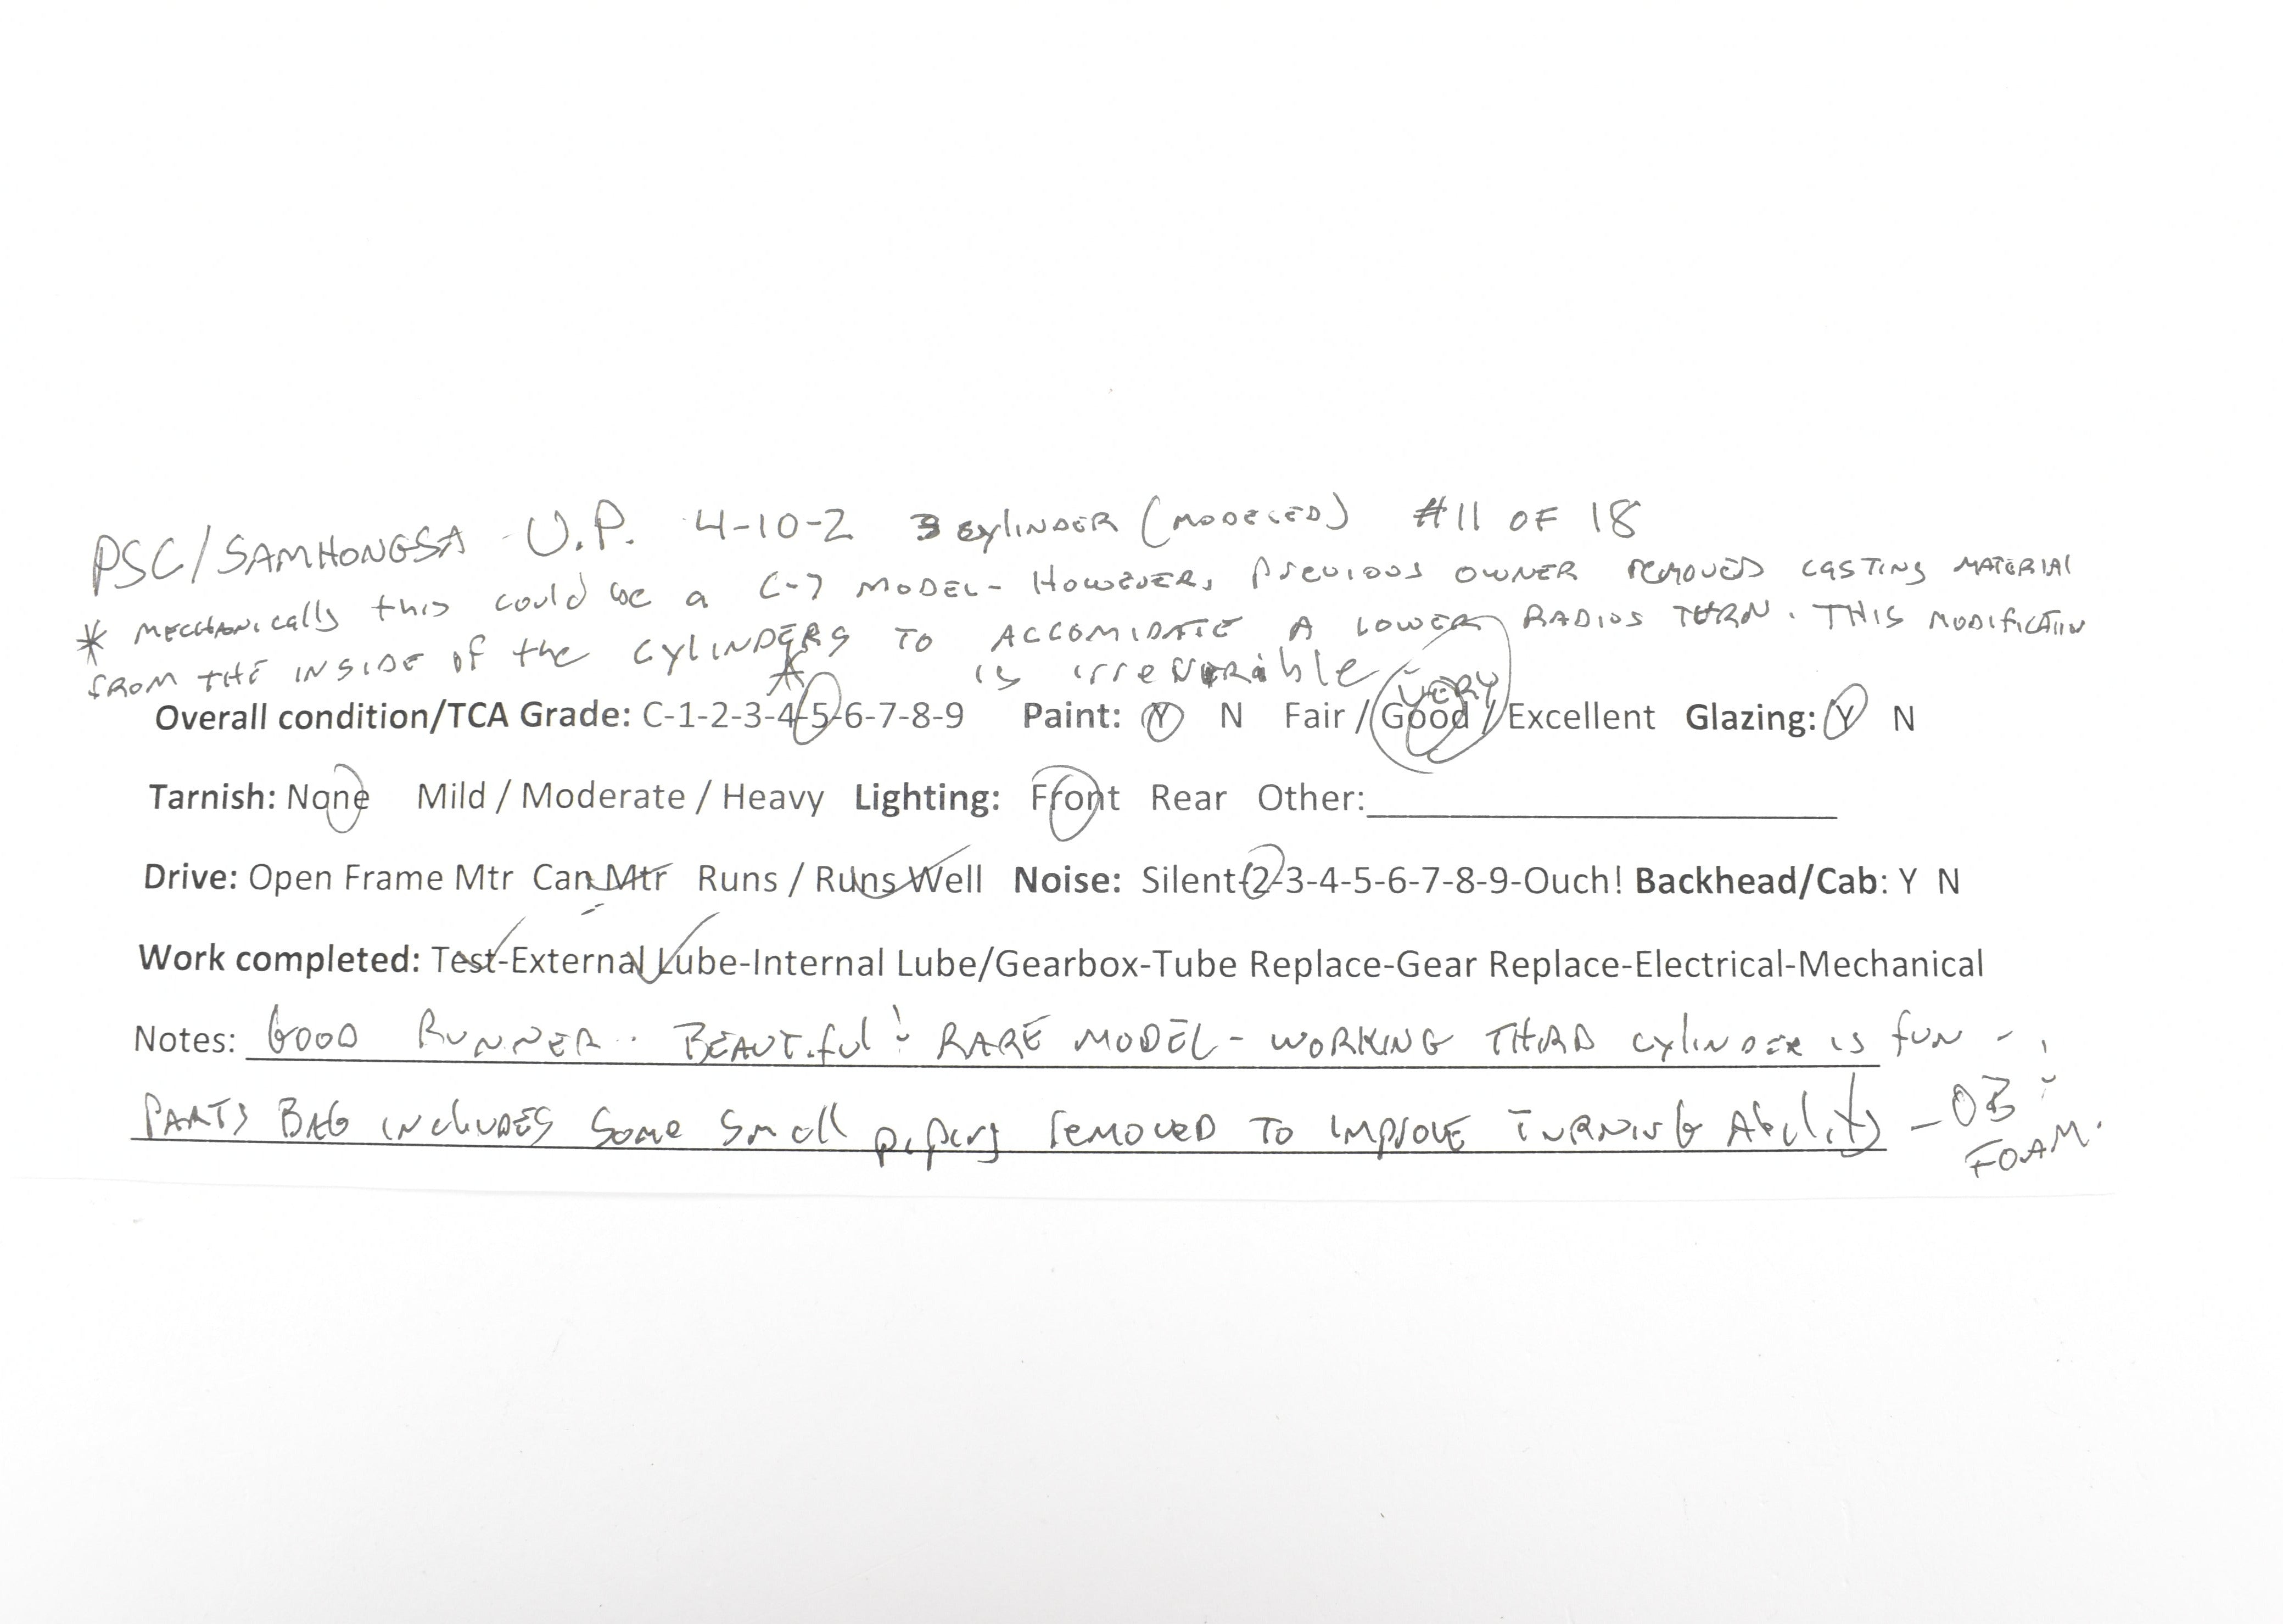 PSC/SAMHONGSA - U.P. 4-10-2 3 cylINDER (MODELED) #11 OF 18
* MECHANICally this could be a C-7 MODEL - HOWEVER, PREVIOUS OWNER REMOVED CASTING MATERIAL
FROM THE INSIDE of the cylINDERS TO ACCOMIDATE A LOWER RADIOS TURN. THIS MODIFICATION
is irreverable
*
VERY
Overall condition/TCA Grade: C-1-2-3-4-5-6-7-8-9 Paint: Y N Fair / Good / Excellent Glazing: Y N
Tarnish: None Mild / Moderate / Heavy Lighting: Front Rear Other:
Drive: Open Frame Mtr Can Mtr Runs / Runs Well Noise: Silent-2-3-4-5-6-7-8-9-Ouch! Backhead/Cab: Y N
Work completed: Test-External Lube-Internal Lube/Gearbox-Tube Replace-Gear Replace-Electrical-Mechanical
Notes: GOOD RUNNER. BEAUTiful! RARE MODEL - WORKING THIRD cylINDER is fUN - !
PARTS BAG INClUDES Some Small piping removed TO IMPROVE TURNING Ability - OB:
FOAM.